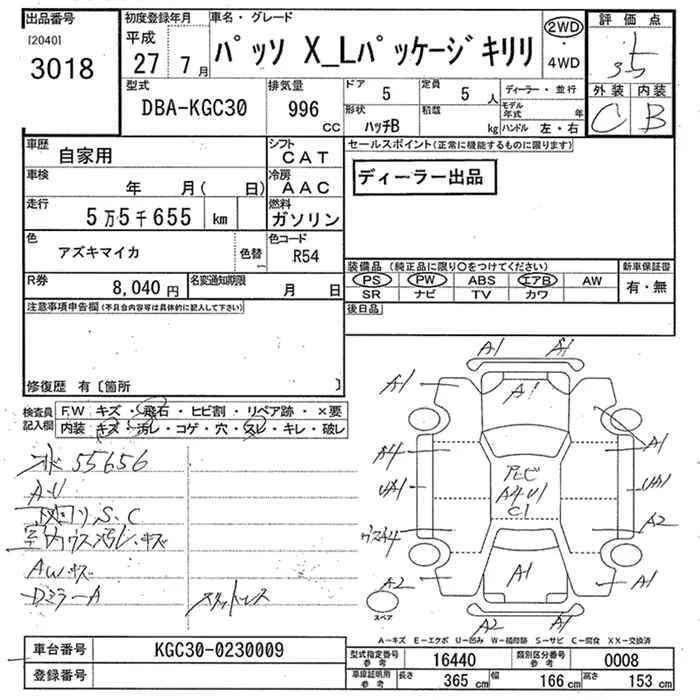 出品番号 初度登録年月 車名・グレード 2WD 評価点
[2040] 平成 パッソ X_Lパッケージキリリ ・
3018 27年 7月 4WD 3.5
型式 排気量 ドア 定員 ディーラー・並行 外装 内装
DBA-KGC30 996 CC 5 5人 モデル年式 年 C B
形状 ハッチB 積載 kg ハンドル 左・右
車歴 自家用 シフト CAT セールスポイント(正常に機能するものに限ります)
車検 年 月( 日) 冷房 AAC ディーラー出品
走行 5万5千655 km 燃料 ガソリン
色 アズキマイカ 色替 色コード R54
装備品 (純正品に限り○をつけてください) 新車保証書
R券 8,040円 名変通知期限 月 日 PS PW ABS エアB AW 有・無
SR ナビ TV カワ
注意事項申告欄(不具合内容等は具体的に記入して下さい) 後日品
修復歴 有〔箇所 〕
検査員記入欄 F.W キズ・飛石・ヒビ割・リペア跡・×要
内装・キズ・汚レ・コゲ・穴・スレ・キレ・破レ
55656
A・U
S.C
AWキズ
DミラーA
スタッドレス
A1 A1
A1 A1
A4 A1
UA1 A4U1 UA1
C1
A2
A2 A1 A1
スペア
A－キズ E－エクボ U－凹み W－補修跡 S－サビ C－腐食 XX－交換済
車台番号 KGC30-0230009 型式指定番号 参考 16440 類別区分番号 参考 0008
登録番号 車庫証明用 参考 長さ 365 cm 幅 166 cm 高さ 153 cm